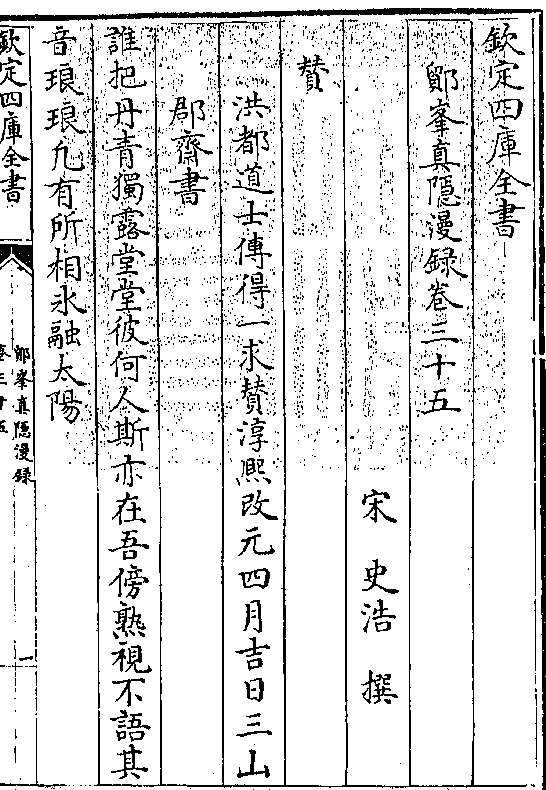 欽定四庫全書
鄮峯真隱漫録卷三十五
宋 史浩 撰
賛
洪都道士傳得一求賛淳熈改元四月吉日三山
郡齋書
誰把丹青獨露堂堂彼何人斯亦在吾傍熟視不語其
音琅琅凢有所相氷融太陽
欽定四庫全書
鄮峯真隱漫録
卷三十五
一